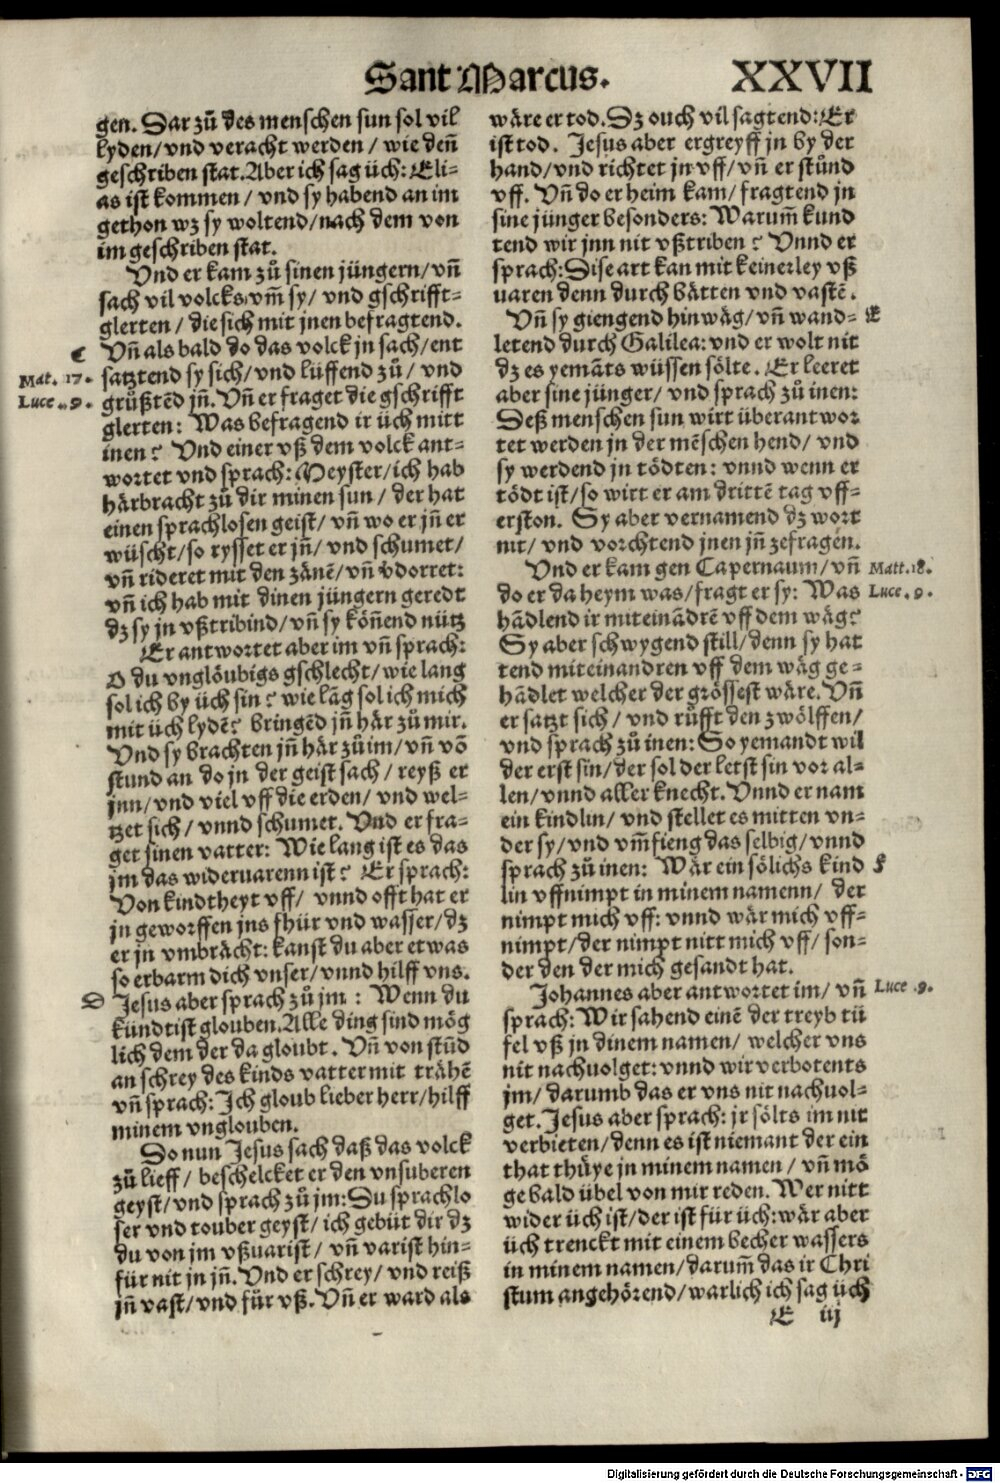 Sant Marcus. XXVII
gen. Dar zů des menschen sun sol vil
lyden/ vnd veracht werden / wie deñ
geschriben stat. Aber ich sag üch: Eli-
as ist kommen / vnd sy habend an im
gethon wz sy woltend/ nach dem von
im geschriben stat.
Vnd er kam zů sinen jüngern/ vñ
sach vil volcks vm̃ sy/ vnd gschrifft-
glerten / die sich mit jnen befragtend.
C
Vñ als bald do das volck jn sach/ ent
Mat. 17.
satztend sy sich/ vnd lüffend zů/ vnd
Luce. 9.
grůßtēd jñ. Vñ er fraget die gschrifft
glerten: Was befragend ir üch mitt
inen? Vnd einer vß dem volck ant-
wortet vnd sprach: Meyster/ ich hab
härbracht zů dir minen sun / der hat
einen sprachlosen geist/ vñ wo er jñ er
wüscht/ so rysset er jñ/ vnd schumet/
vñ rideret mit den zänē/ vñ v̄dorret:
vñ ich hab mit dinen jüngern geredt
dz sy jn vßtribind/ vñ sy köñend nütz
Er antwortet aber im vñ sprach:
O du vnglöubigs gschlecht/ wie lang
sol ich by üch sin? wie lāg sol ich mich
mit üch lydē? bringēd jñ här zů mir.
Vnd sy brachten jñ här zů im/ vñ vō
stund an do jn der geist sach / reyß er
jnn/ vnd viel vff die erden/ vnd wel-
tzet sich/ vnnd schumet. Vnd er fra-
get sinen vatter: Wie lang ist es das
jm das wideruarenn ist? Er sprach:
Von kindtheyt vff/ vnnd offt hat er
jn geworffen jns fhür vnd wasser/ dz
er jn vmbrächt: kanst du aber etwas
so erbarm dich vnser/ vnnd hilff vns.
D
Jesus aber sprach zů jm: Wenn du
kündtist glouben. Alle ding sind mög
lich dem der da gloubt. Vñ von stūd
an schrey des kinds vatter mit trähē
vñ sprach: Ich gloub lieber herr/ hilff
minem vnglouben.
So nun Jesus sach daß das volck
zů lieff/ beschelcket er den vnsuberen
geyst/ vnd sprach zů jm: Du sprachlo
ser vnd touber geyst/ ich gebüt dir dz
du von jm vßuarist/ vñ varist hin-
für nit jn jñ. Vnd er schrey/ vnd reiß
jñ vast/ vnd für vß. Vñ er ward als
wäre er tod. Dz ouch vil sagtend: Er
ist tod. Jesus aber ergreyff jn by der
hand/ vnd richtet jn vff/ vñ er stůnd
vff. Vñ do er heim kam/ fragtend jn
sine jünger besonders: Warum̃ kund
tend wir jnn nit vßtriben? Vnnd er
sprach: Dise art kan mit keinerley vß
uaren denn durch bätten vnd vastē.
Vñ sy giengend hinwäg/ vñ wand-
E
letend durch Galilea: vnd er wolt nit
dz es yemāts wüssen sölte. Er leeret
aber sine jünger/ vnd sprach zů inen:
Deß menschen sun wirt überantwor
tet werden jn der mēschen hend/ vnd
sy werdend jn tödten: vnnd wenn er
tödt ist/ so wirt er am drittē tag vff-
erston. Sy aber vernamend dz wort
nit/ vnd vorchtend jnen jñ zefragen.
Vnd er kam gen Capernaum/ vñ
Matt. 18.
do er da heym was/ fragt er sy: Was
Luce. 9.
hādlend ir miteinādrē vff dem wäg?
Sy aber schwygend still/ denn sy hat
tend miteinandren vff dem wäg ge-
hādlet welcher der grössest wäre. Vñ
er satzt sich/ vnd růfft den zwölffen/
vnd sprach zů inen: So yemandt wil
der erst sin/ der sol der letst sin vor al-
len/ vnnd aller knecht. Vnnd er nam
ein kindlin/ vnd stellet es mitten vn-
der sy/ vnd vm̃fieng das selbig/ vnnd
sprach zů inen: Wär ein sölichs kind
F
lin vffnimpt in minem namenn/ der
nimpt mich vff: vnnd wär mich vff-
nimpt/ der nimpt nitt mich vff/ son-
der den der mich gesandt hat.
Johannes aber antwortet im/ vñ
Luce .9.
sprach: Wir sahend einē der treyb tü
fel vß jn dinem namen/ welcher vns
nit nachuolget: vnnd wir verbotents
jm/ darumb das er vns nit nachuol-
get. Jesus aber sprach: jr sölts im nit
verbieten/ denn es ist niemant der ein
that thüye jn minem namen / vñ mö
ge bald übel von mir reden. Wer nitt
wider üch ist/ der ist für üch: wär aber
üch trenckt mit einem becher wassers
in minem namen/ darum̃ das ir Chri
stum angehörend/ warlich ich sag üch
E iij
Digitalisierung gefördert durch die Deutsche Forschungsgemeinschaft - DFG